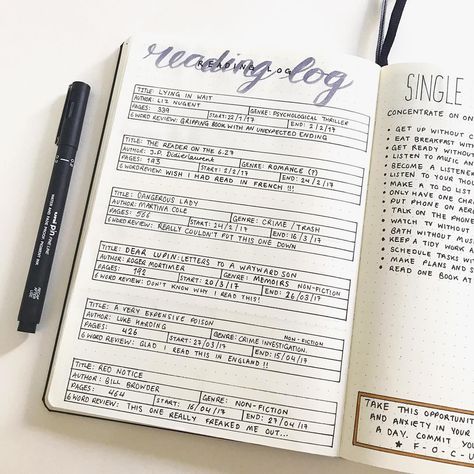 reading log
READING LOG
TITLE: LYING IN WAIT
AUTHOR: LIZ NUGENT
GENRE: PSYCHOLOGICAL THRILLER
PAGES: 339
START: 22/1/17
END: 2/2/17
6 WORD REVIEW: GRIPPING BOOK WITH AN UNEXPECTED ENDING
TITLE: THE READER ON THE 6.27
AUTHOR: J.P. Didierlaurent
GENRE: ROMANCE (?)
PAGES: 193
START: 2/2/17
END: 24/2/17
6 WORD REVIEW: WISH I HAD READ IN FRENCH !!!
TITLE: DANGEROUS LADY
AUTHOR: MARTINA COLE
GENRE: CRIME / TRASH
PAGES: 556
START: 24/2/17
END: 16/3/17
6 WORD REVIEW: REALLY COULDN'T PUT THIS ONE DOWN
TITLE: DEAR LUPIN: LETTERS TO A WAYWARD SON
AUTHOR: ROGER MORTIMER
GENRE: MEMOIRS NON-FICTION
PAGES: 192
START: 20/3/17
END: 26/03/17
6 WORD REVIEW: DON'T KNOW WHY I READ THIS!
TITLE: A VERY EXPENSIVE POISON
AUTHOR: LUKE HARDING
GENRE: CRIME INVESTIGATION, NON-FICTION
PAGES: 426
START: 27/03/17
END: 15/04/17
6 WORD REVIEW: GLAD I READ THIS IN ENGLAND !!
TITLE: RED NOTICE
AUTHOR: BILL BROWDER
GENRE: NON-FICTION
PAGES: 464
START: 16/04/17
END: 27/04/17
6 WORD REVIEW: THIS ONE REALLY FREAKED ME OUT...
SINGLE
CONCENTRATE ON ON
GET UP WITHOUT C
EAT BREAKFAST WIT
GET READY WITHOUT
LISTEN TO MUSIC AN
BECOME A LISTENER
LISTEN TO YOUR THO
MAKE A TO DO LIST
ONLY HAVE ONE
PUT PHONE ON AER
TALK ON THE PHON
WATCH TV WITHOUT
BATH WITHOUT MU
KEEP A TIDY WORK A
SCHEDULE TASKS WIT
MAKE PLANS AND S
READ ONE BOOK AT
TAKE THIS OPPORTUNIT
AND ANXIETY IN YOUR
A DAY. COMMIT YOU
★ F-O-C-
uni pin FINE LINE